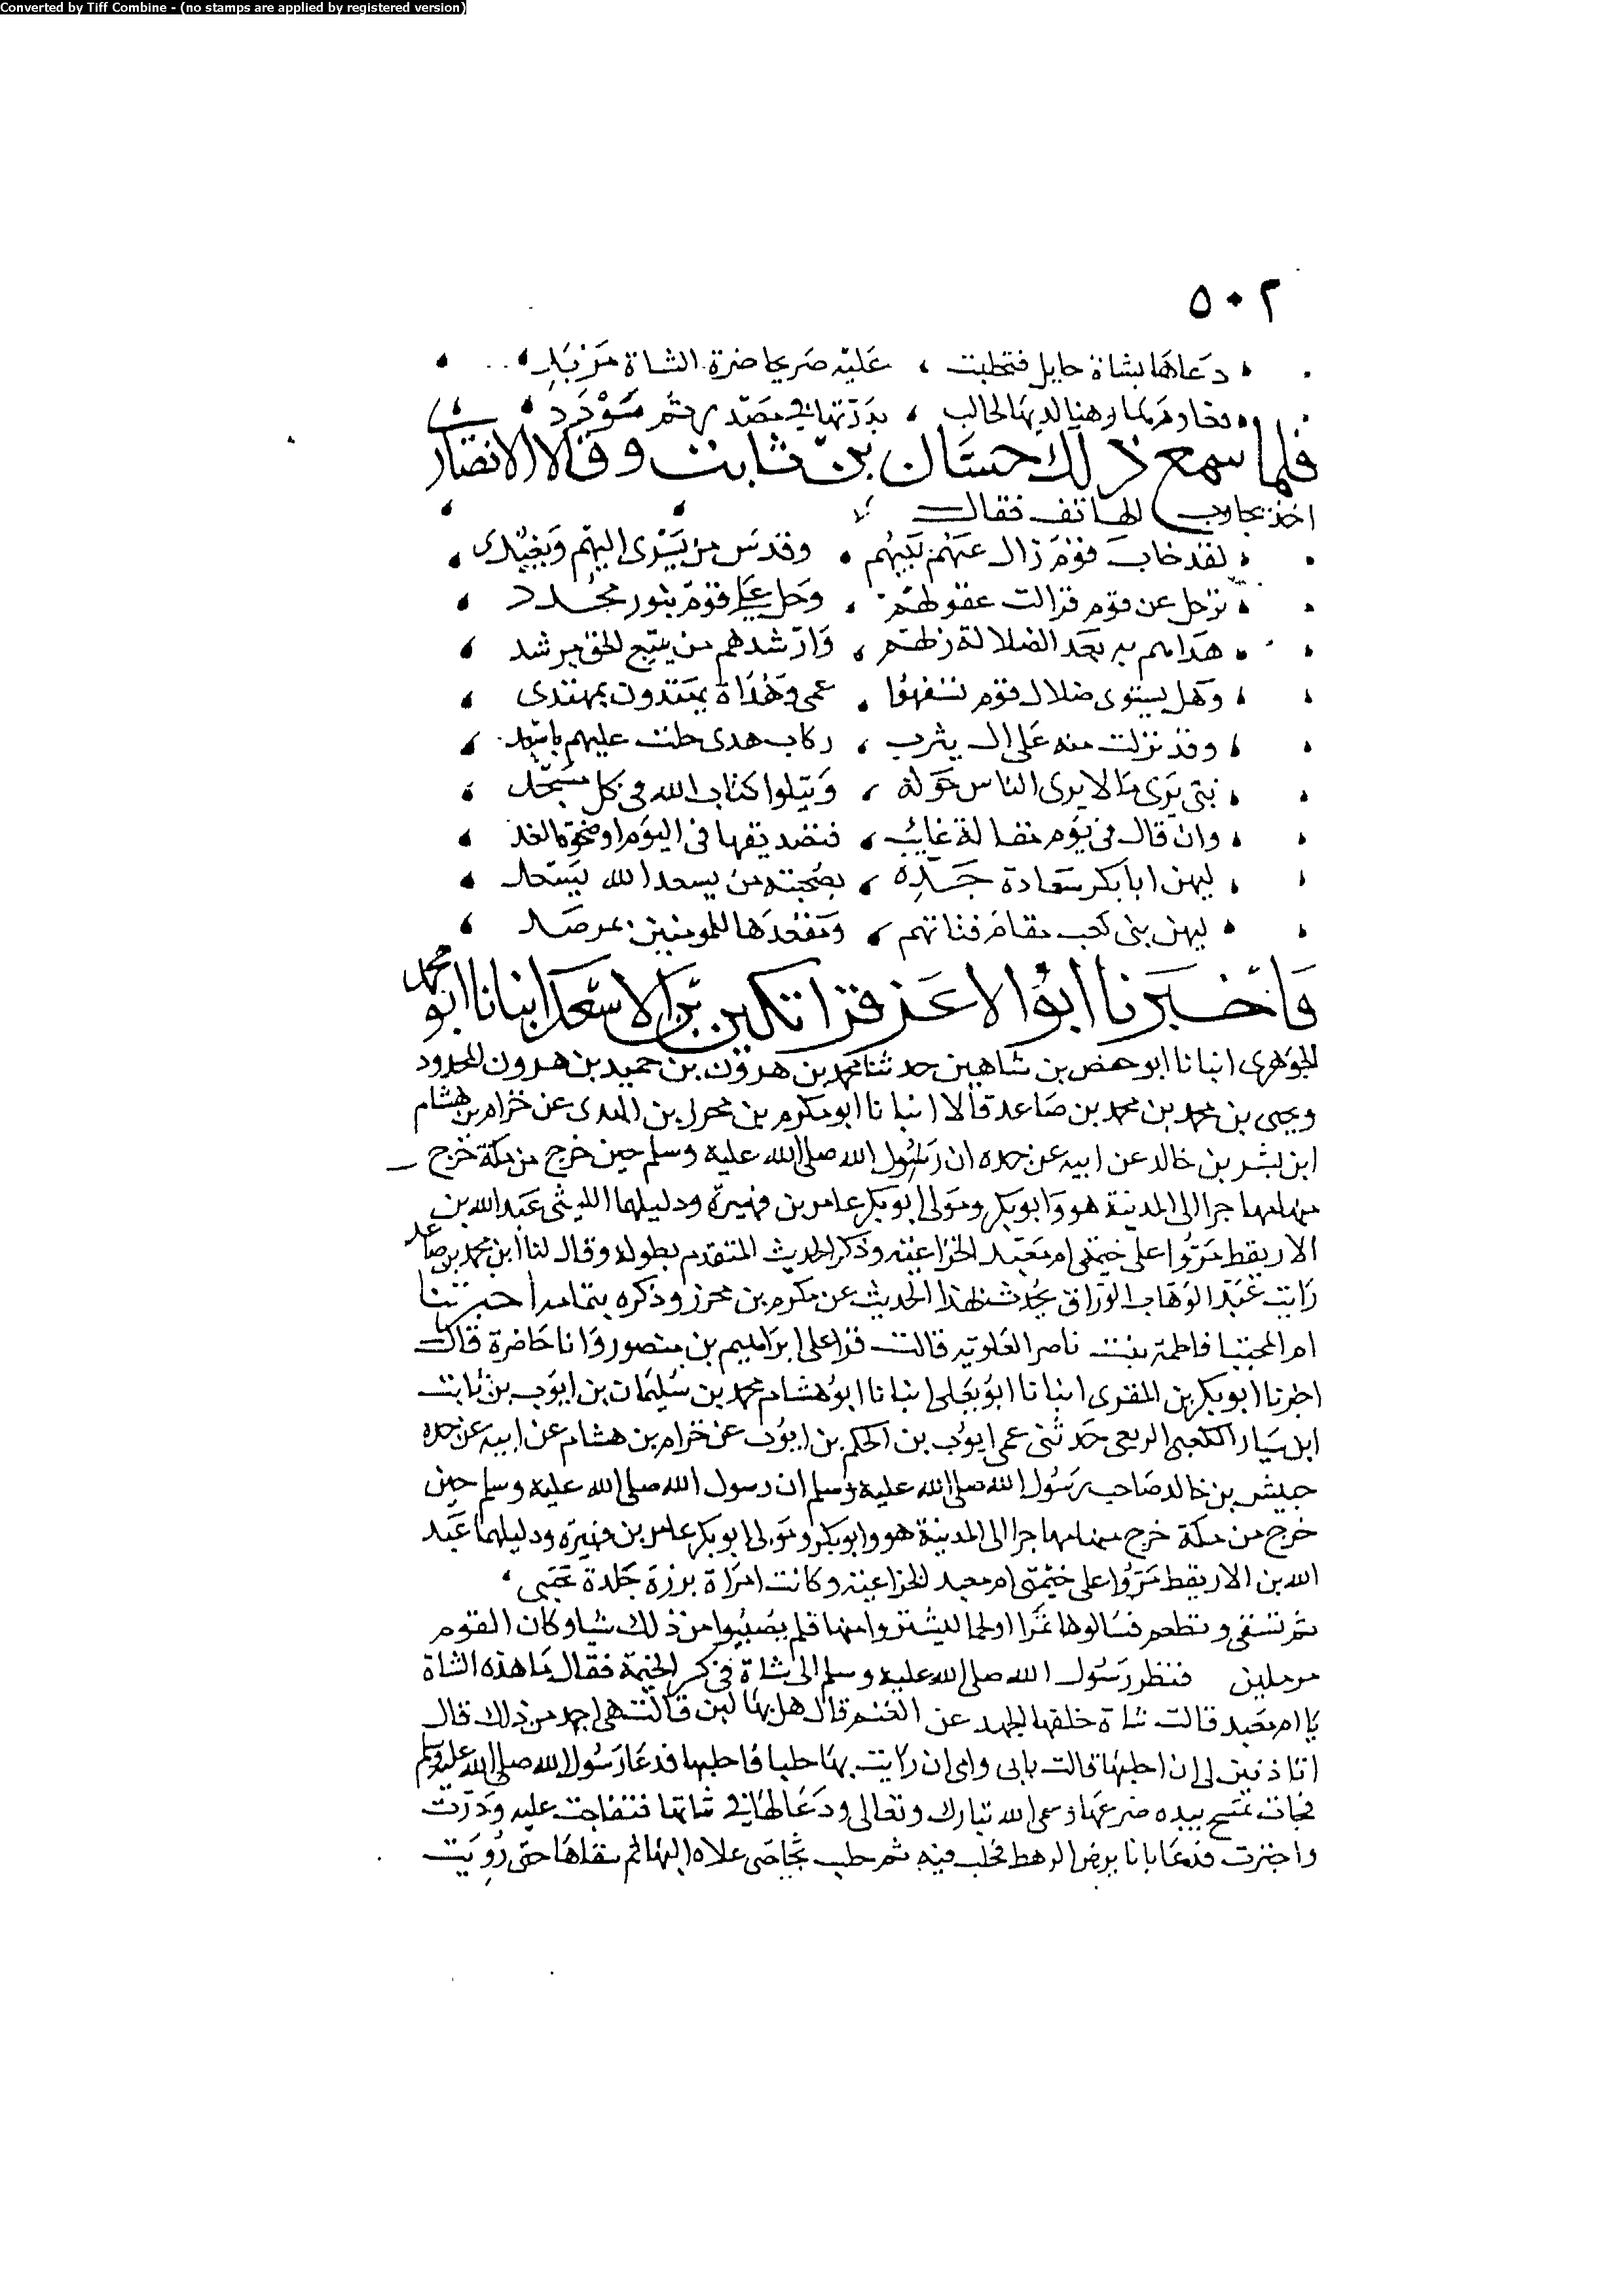 Converted by Tiff Combine - (no stamps are applied by registered version)
٥٠٢
دعاها بشاة حايل فتحلبت ، عليه صريحا ضرة الشاة مزبد
لديها لحالب ، في مصدر ثم مورد
فلما سمع ذلك حسان بن ثابت وقالا الانصارى
اخذ يجاوب الهاتف فقال
لقد خاب قوم زال عنهم نبيهم ، وقدس من يسرى اليهم ويغتدى
ترحل عن قوم فزالت عقولهم ، وحل على قوم بنور مجدد
هداهم به بعد الضلالة ربهم ، وارشدهم من يتبع الحق يرشد
وهل يستوى ضلال قوم تسفهوا ، عمى وهداة يهتدون بمهتدى
وقد نزلت منه على ال يثرب ، ركاب هدى حلت عليهم باسعد
نبى يرى مالا يرى الناس حوله ، ويتلوا كتاب الله فى كل مسجد
وان قال فى يوم مقالة غايب ، فتصديقها فى اليوم او ضحوة الغد
ليهن ابا بكر سعادة جده ، بصحبته من يسعد الله يسعد
ليهن بنى كعب مقام فتاتهم ، ومقعدها للمومنين بمرصد
واخبرنا ابو الاعز قراتكين بن الاسعد انبانا ابو محمد
الجوهرى انبانا ابو حفص بن شاهين حدثنا محمد بن هرون بن حميد بن هرون المجدور
ويحيى بن محمد بن محمد بن صاعد قالا انبانا ابو مكرم بن محرز بن المهدى عن حزام بن هشام
ابن بشر بن خالد عن ابيه عن جده ان رسول الله صلى الله عليه وسلم حين خرج من مكة خرج
منها مهاجرا الى المدينة هو وابو بكر ومولى ابو بكر عامر بن فهيرة ودليلها الليثى عبد الله بن
الاريقط مروا على خيمتى ام معبد الخزاعية وذكر الحديث المتقدم بطوله وقال لنا ابن محمد بن صاعد
رايت عبد الوهاب الوراق يحدث بهذا الحديث عن مكرم بن محرز وذكره بتمامه اخبرتنا
ام المجتبا فاطمة بنت ناصر العلوية قالت قرا على ابراهيم بن منصور وانا حاضرة قال
اخبرنا ابو بكر بن المقرى انبانا ابو يعلى انبانا ابو هشام محمد بن سليمان بن ايوب بن ثابت
ابن سيار الكعبى الربعى حدثنى عمى ايوب بن الحكم بن ايوب عن حزام بن هشام عن ابيه عن جده
حبيش بن خالد صاحب رسول الله صلى الله عليه وسلم ان رسول الله صلى الله عليه وسلم حين
خرج من مكة خرج منها مهاجرا الى المدينة هو وابو بكر ومولى ابو بكر عامر بن فهيرة ودليلهما عبد
الله بن الاريقط مروا على خيمتى ام معبد الخزاعية وكانت امراة برزة جلدة تحتبى
ثم تسقى وتطعم فسالوها تمرا او لحما ليشتروا منها فلم يصيبوا من ذلك شيا وكان القوم
مرملين فنظر رسول الله صلى الله عليه وسلم الى شاة فى كسر الخيمة فقال ما هذه الشاة
يا ام معبد قالت شاة خلفها الجهد عن الغنم قال هل بها لبن قالت هى اجهد من ذلك قال
اتاذنين لى ان احلبها قالت بابى وامى ان رايت بها حلبا فاحلبها فدعا رسول الله صلى الله عليه وسلم
فجات تمسح بيده ضرعها وسمى الله تبارك وتعالى ودعا لها فى شاتها فتفاجت عليه ودرت
واجترت فدعا بانا يربض الرهط فحلب فيه ثم حلب ثجا حتى علاه البها ثم سقاها حتى رويت